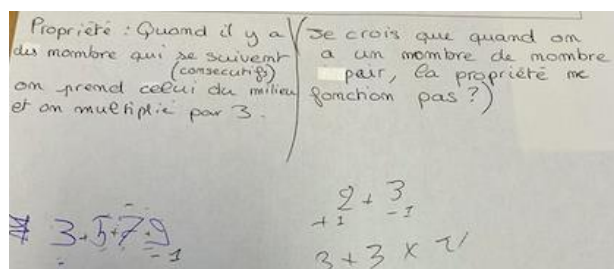 Propriété : Quand il y a
des mombre qui se suivent
(consecutifs)
on prend celui du milieu
et on multiplie par 3.
Je crois que quand on
a un mombre de mombre
pair, la propriété me
fonction pas ?)
3+5+7+9
-1
2 + 3
+1 -1
3 + 3 x